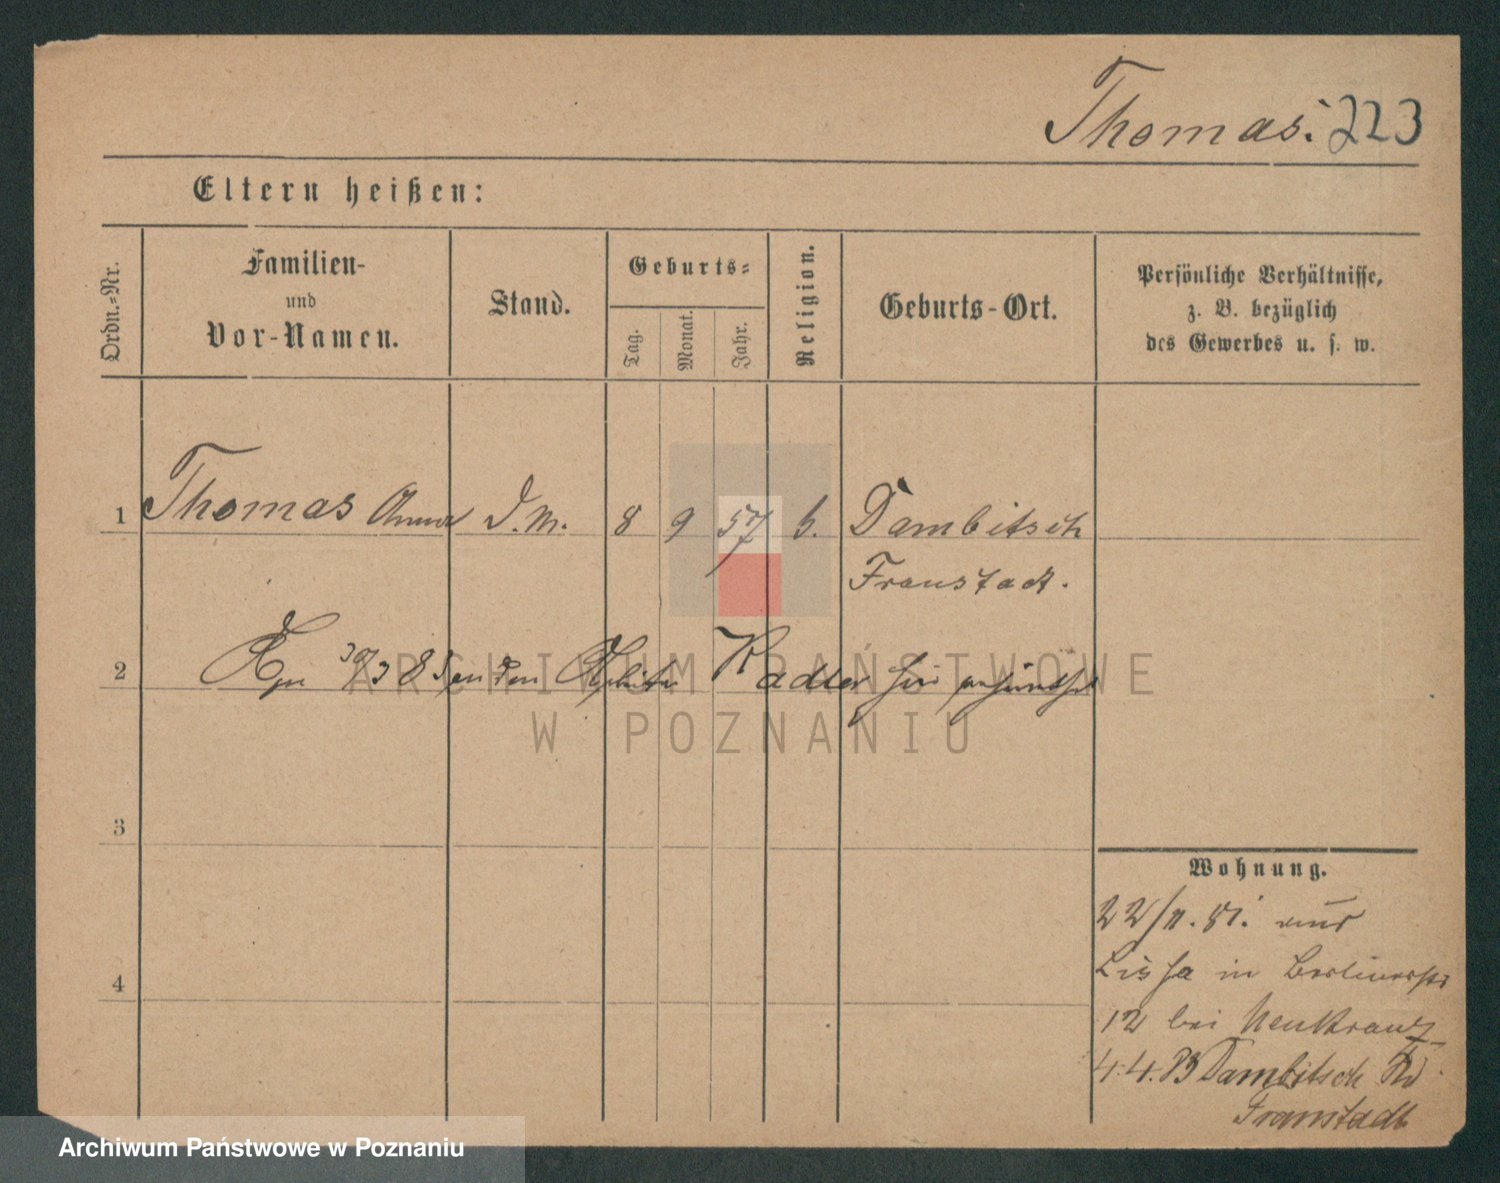 Thomas. 223
Eltern heißen:
Ordn.-Nr.
Familien-
und
Vor-Namen.
Stand.
Geburts-
Tag.
Monat.
Jahr.
Religion.
Geburts-Ort.
Persönliche Verhältnisse,
z. B. bezüglich
des Gewerbes u. s. w.
1 Thomas Anna D.M. 8 9 57 Dambitsch
Fraustadt.
2 den Kadler
ARCHIWUM PAŃSTWOWE
W POZNANIU
3
Wohnung.
22/11. 81. aus
Lissa in Berlinerstr
4
12 bei Neukranz
4.4.83 Dambitsch Kr
Fraustadt
Archiwum Państwowe w Poznaniu